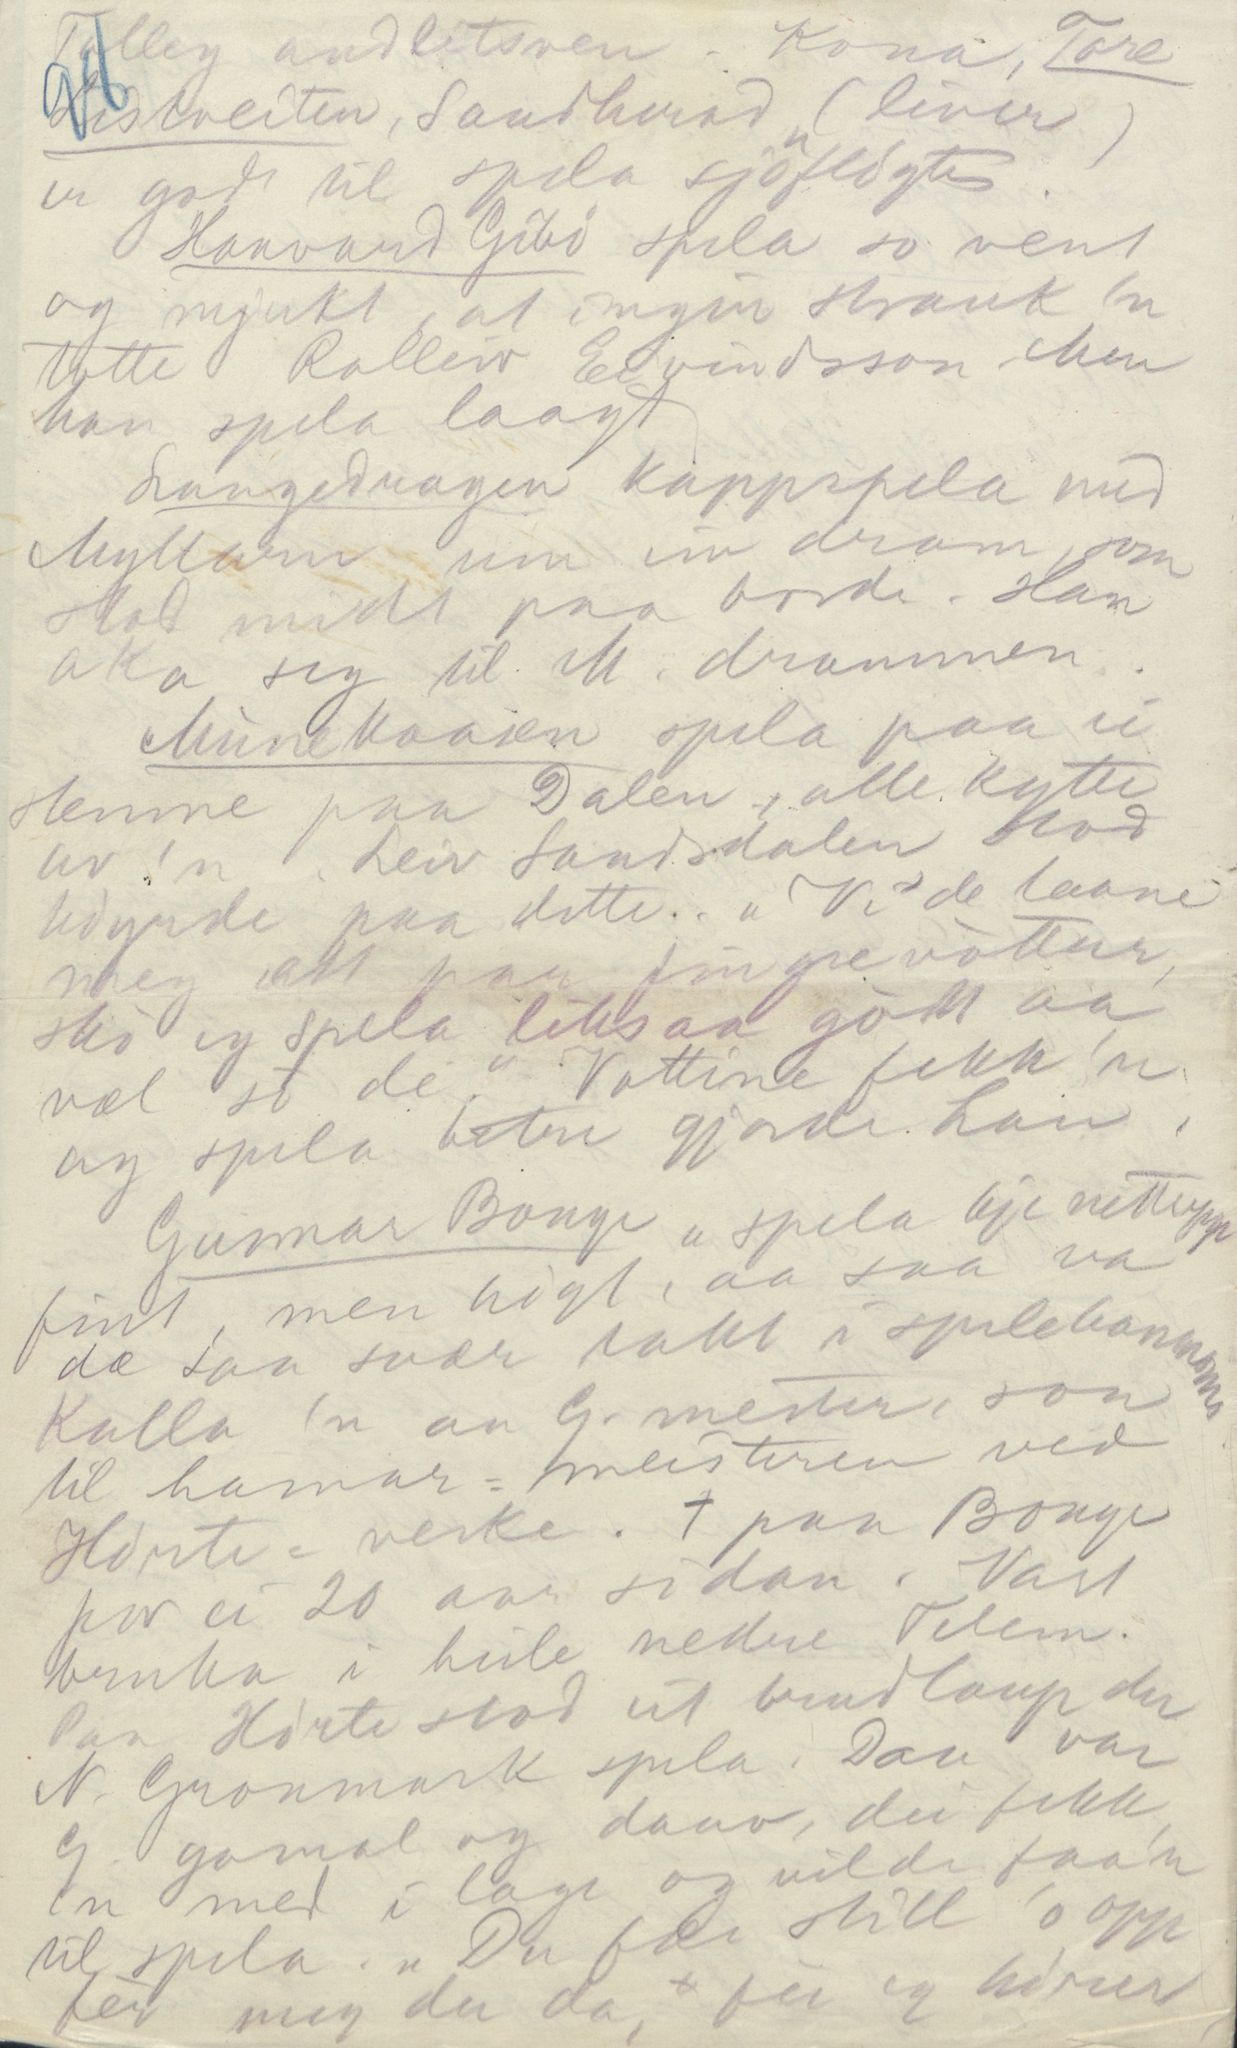 Talleg andletsven. Kona, Tore
Listveiten, Sandherad (liver)
er god til spela sjöflögte.
Haavard Gibö spela so vent
og mjukt, at ingin strauk 'n
totte Rolleiv Eivindsson. Men
han spela laagt.
Langedragen kappspela med
Myllarn um ein dram, som
stod midt paa borde. Han
aka seg til M. drammen.
Minekaasen spela paa ei
stemne paa Dalen, alle kytte
av 'n. Leiv Sandsdalen stod
höyrde paa dette. "Vi de laane
meg ett par fingrevöttur,
sko eg spela likesaa gott aa
væl so de." Vottine fekk 'n
og spela betre gjorde han.
Gunnar Bonge "spela kje nettupp
fint, men högt, aa saa va
dæ saa svær takt i spelebommom
Kalla 'n aa G. mester, son
til hamar-meisteren ved
Hörte-verke. † paa Bonge
for ei 20 aar sidan. Vart
bruka i heile nedre Telem.
Paa Hörte stod eit brudlaup der
N. Gronmark spela. Daa var
G. gamal og dauv, dei fekk
'n med i lage og vilde faa'n
til spela. "Du fær still 'o opp
fer meg du da, fer eg hörer